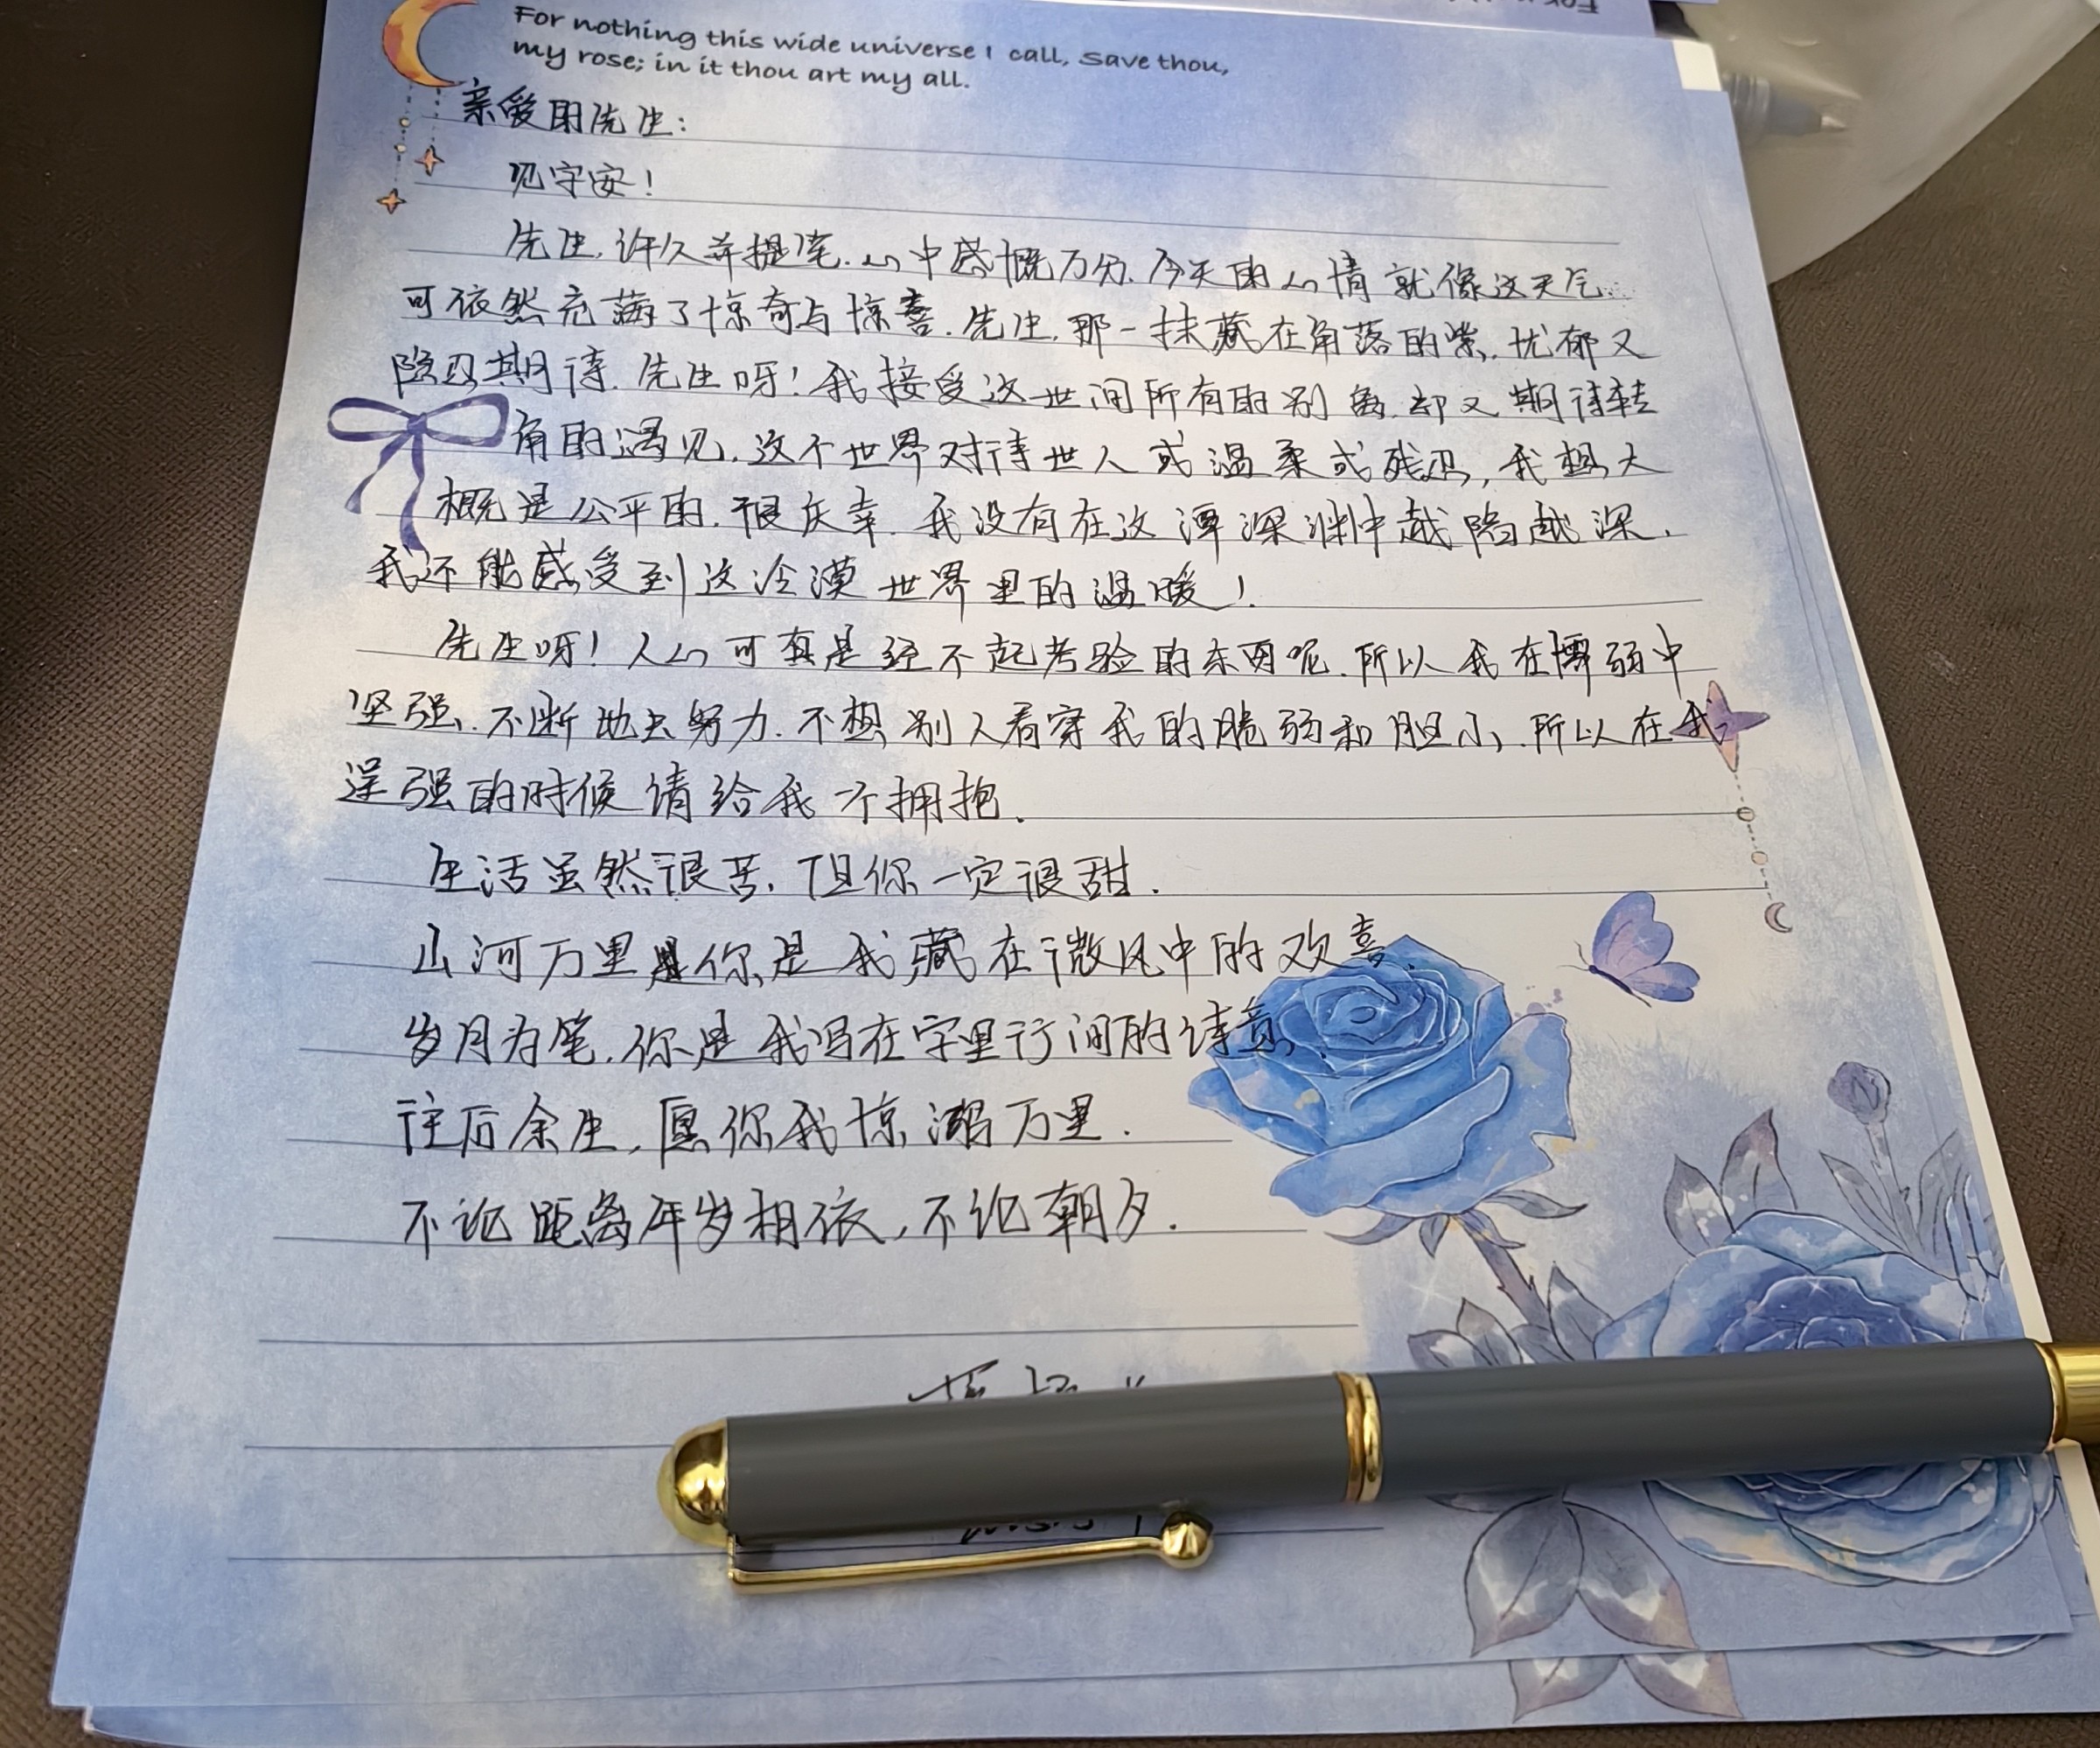 For nothing this wide universe I call, Save thou,
my rose; in it thou art my all.
亲爱的先生:
见字安!
先生,许久并提笔.心中感慨万分.今天的心情就像这天气.
可依然充满了惊奇与惊喜.先生,那一抹藏在角落的紫.忧郁又
隐忍期待.先生呀!我接受这世间所有的别离.却又期待转
角的遇见.这个世界对待世人或温柔或残忍,我想大
概是公平的.很庆幸.我没有在这潭深渊中越陷越深.
我还能感受到这冷漠世界里的温暖!
先生呀!人心可真是经不起考验的东西呢.所以我在薄弱中
坚强.不断地去努力.不想别人看穿我的脆弱和胆小.所以在我
逞强的时候请给我一个拥抱.
生活虽然很苦.但你一定很甜.
山河万里 你是我藏在微风中的欢喜.
岁月为笔.你是我写在字里行间的诗意.
往后余生,愿你我惊 万里.
不论距离年岁相依,不论朝夕.